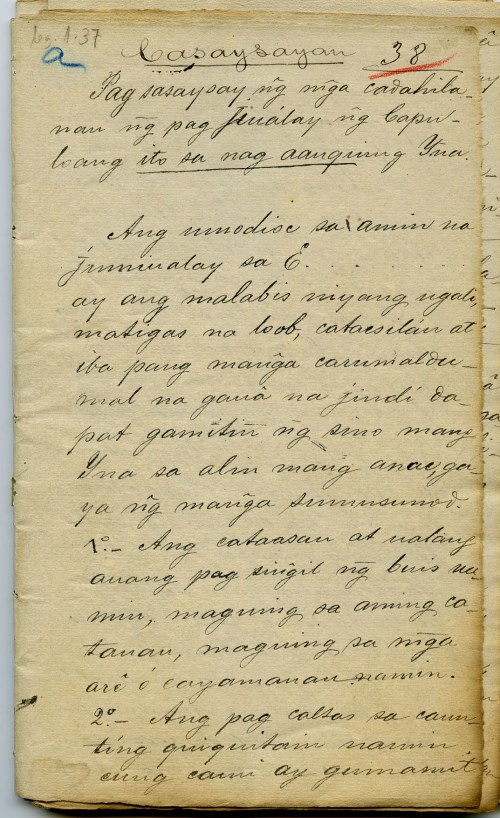 Leg. 1-37
a
Casaysayan 38
Pag sasaysay n͠g m͠ga cadahila-
nan n͠g pag jiuálay n͠g Capu-
loang ito sa nag aanquing Yna.
Ang umodioc sa amin na
jumiualay sa E. . . . . . . . . .
ay ang malabis niyang ugali,
matigas na loob, catacsilan at
iba pang man͠ga carumaldu-
mal na gauá na jindí da-
pat gamitin n͠g sino mang
Yna sa alin mang anac, ga-
ya n͠g man͠ga sumusunod.
1º.- Ang cataasan at ualang
auang pag sin͠gil n͠g buis na-
min, maguing sa aming ca-
tauan, maguing sa m͠ga
arê ó cayamanan namin.
2º.- Ang pag caltas sa caun-
ting quiquitain namin
cung cami ay gumamit